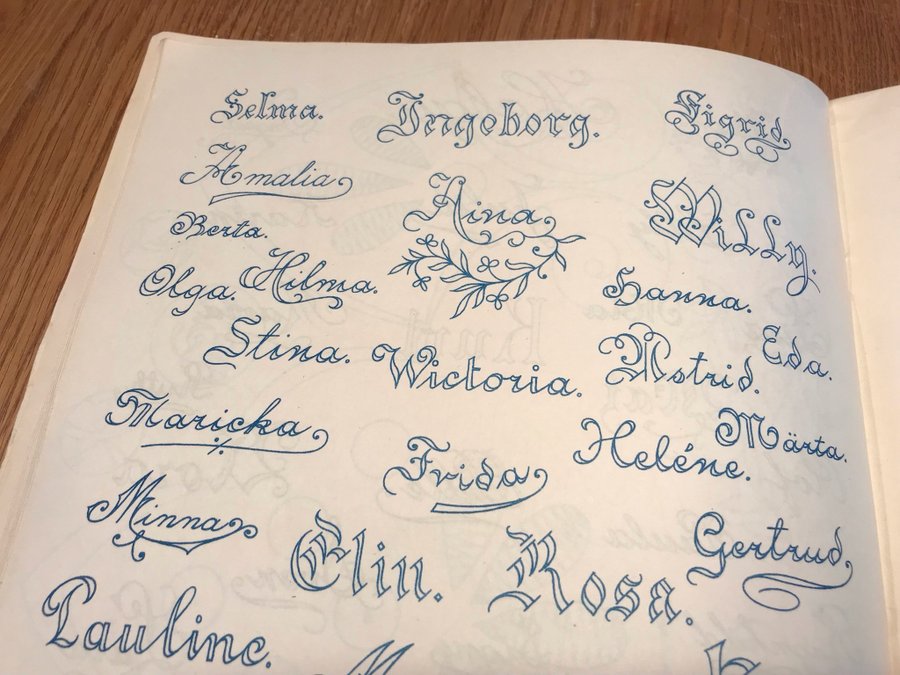 Selma. Ingeborg. Sigrid.
Amalia Nina Willy.
Berta.
Olga. Hilma. Hanna.
Stina. Wictoria. Astrid. Eda.
Maricka Frida Heléne. Märta.
Minna Elin. Rosa. Gertrud
Pauline.